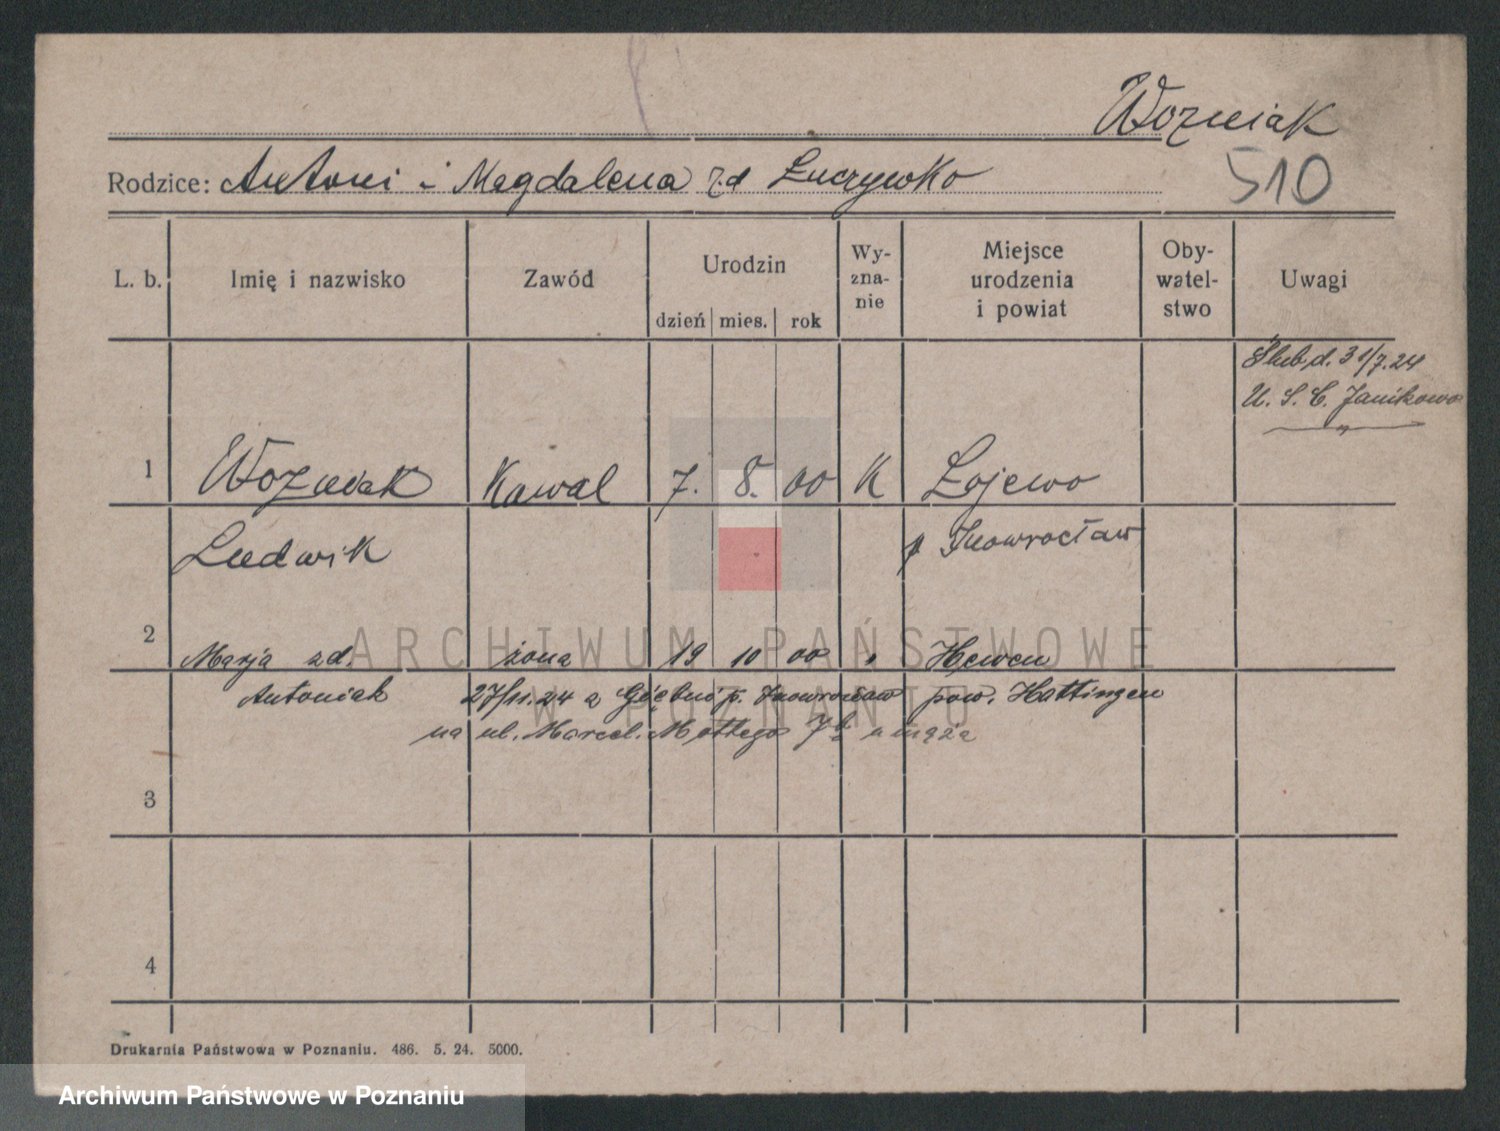 Wozniak
Rodzice: Antoni i Magdalena zd Luczywko
510
L. b. Imię i nazwisko Zawód Urodzin dzień mies. rok Wy-zna-nie Miejsce urodzenia i powiat Oby-watel-stwo Uwagi
Ślub d. 31/7.24
U. S. C. Janikowo
1 Wozniak Kowal 7. 8. 00 K Łojewo
Ludwik p Inowrocław
2 Marja zd. żona 19 10 00 " Heven
Antoniak 27/11.24 z p. Inowrocław pow. Hattingen
na ul. Marcel. Mottego 7b u męża
3
4
ARCHIWUM PAŃSTWOWE
W POZNANIU
Drukarnia Państwowa w Poznaniu. 486. 5. 24. 5000.
Archiwum Państwowe w Poznaniu